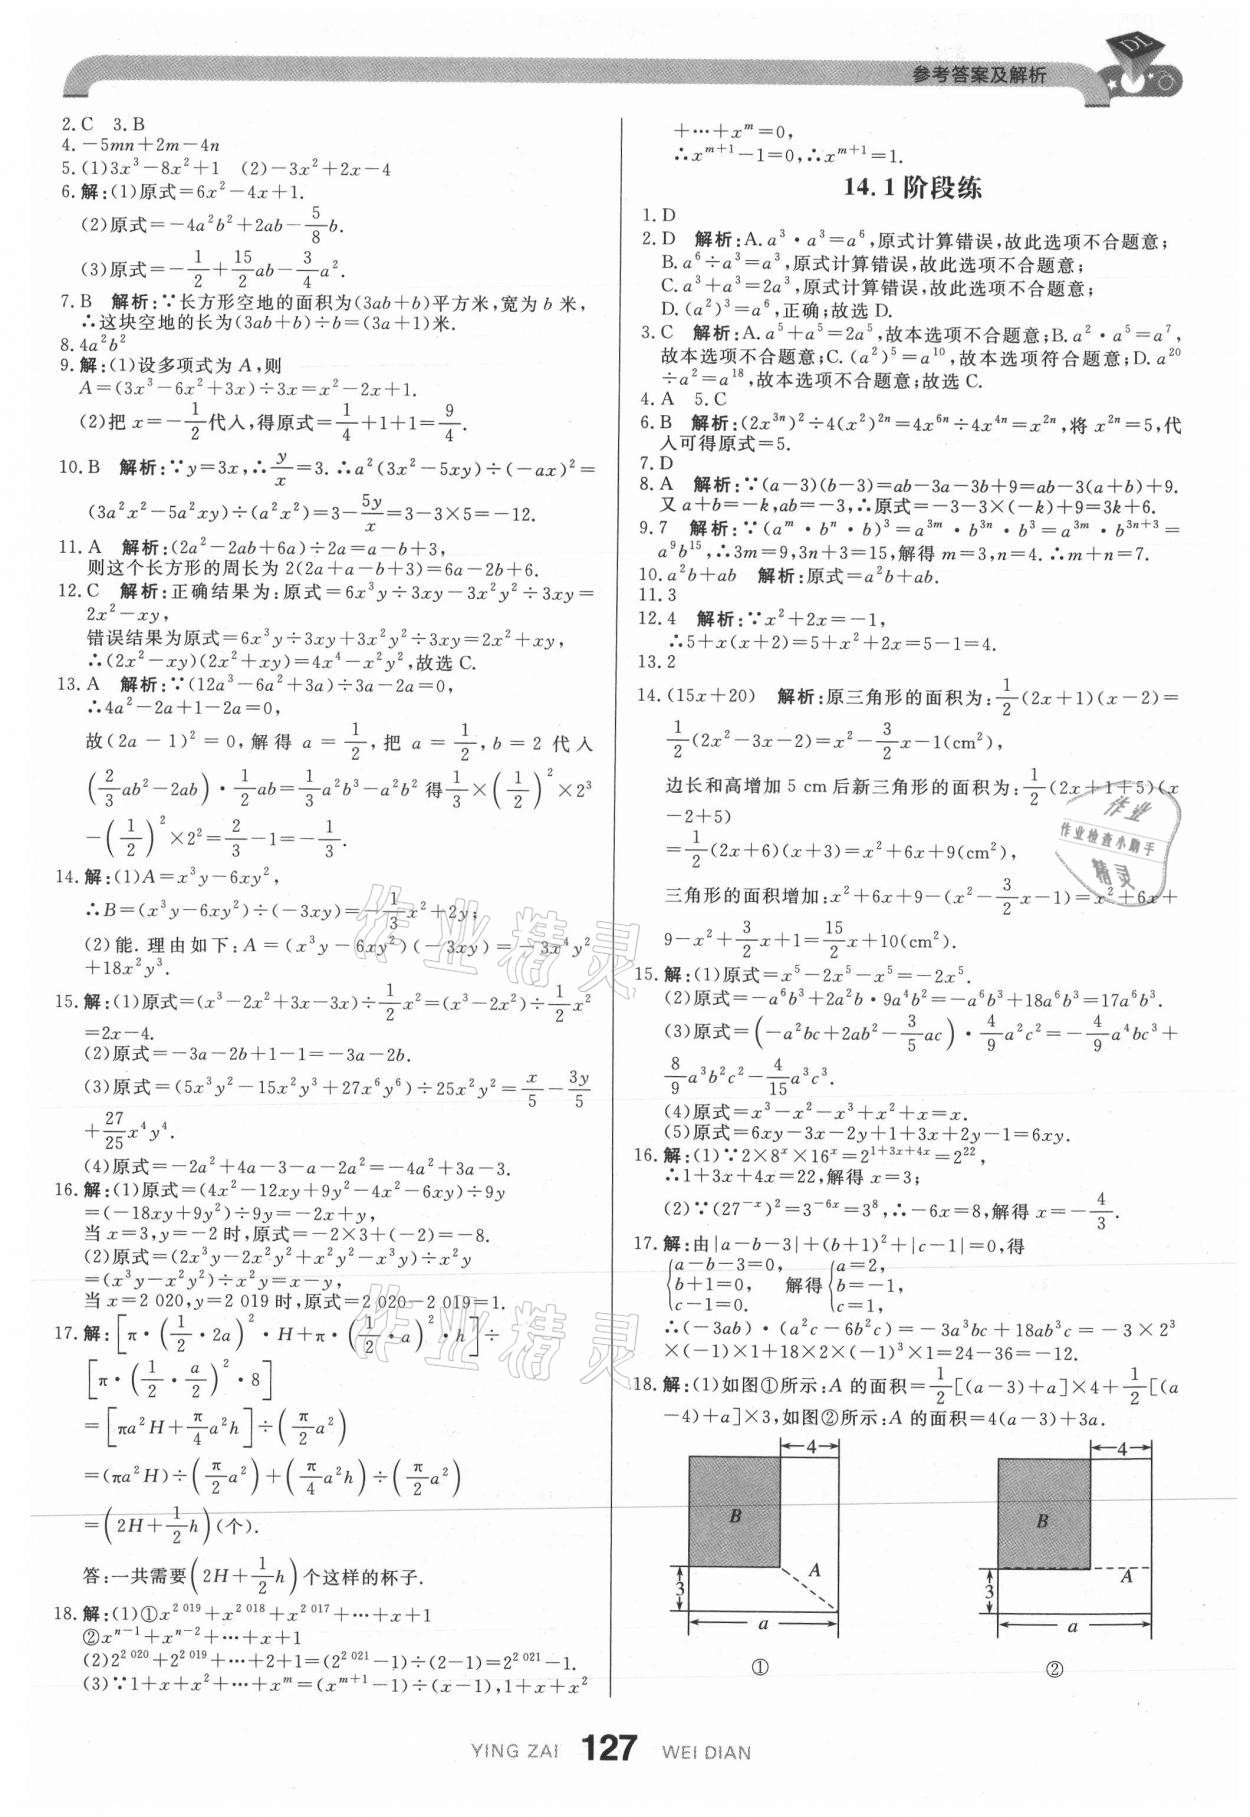 参考答案及解析
DL
2.C 3.B
4.－5mn＋2m－4n
5.(1)3x³－8x²＋1 (2)－3x²＋2x－4
6.解:(1)原式＝6x²－4x＋1.
(2)原式＝－4a²b²＋2ab－5/8b.
(3)原式＝－1/2＋15/2ab－3/4a².
7.B 解析:∵长方形空地的面积为(3ab＋b)平方米,宽为b米,
∴这块空地的长为(3ab＋b)÷b＝(3a＋1)米.
8.4a²b²
9.解:(1)设多项式为A,则
A＝(3x³－6x²＋3x)÷3x＝x²－2x＋1.
(2)把x＝－1/2代入,得原式＝1/4＋1＋1＝9/4.
10.B 解析:∵y＝3x,∴y/x＝3.∴a²(3x²－5xy)÷(－ax)²＝
(3a²x²－5a²xy)÷(a²x²)＝3－5y/x＝3－3×5＝－12.
11.A 解析:(2a²－2ab＋6a)÷2a＝a－b＋3,
则这个长方形的周长为2(2a＋a－b＋3)＝6a－2b＋6.
12.C 解析:正确结果为:原式＝6x³y÷3xy－3x²y²÷3xy＝
2x²－xy,
错误结果为原式＝6x³y÷3xy＋3x²y²÷3xy＝2x²＋xy,
∴(2x²－xy)(2x²＋xy)＝4x⁴－x²y²,故选C.
13.A 解析:∵(12a³－6a²＋3a)÷3a－2a＝0,
∴4a²－2a＋1－2a＝0,
故(2a－1)²＝0,解得a＝1/2,把a＝1/2,b＝2代入
(2/3ab²－2ab)·1/2ab＝1/3a²b³－a²b²得1/3×(1/2)²×2³
－(1/2)²×2²＝2/3－1＝－1/3.
14.解:(1)A＝x³y－6xy²,
∴B＝(x³y－6xy²)÷(－3xy)＝－1/3x²＋2y;
(2)能.理由如下:A＝(x³y－6xy²)(－3xy)＝－3x⁴y²
＋18x²y³.
15.解:(1)原式＝(x³－2x²＋3x－3x)÷1/2x²＝(x³－2x²)÷1/2x²
＝2x－4.
(2)原式＝－3a－2b＋1－1＝－3a－2b.
(3)原式＝(5x³y²－15x²y³＋27x⁶y⁶)÷25x²y²＝x/5－3y/5
＋27/25x⁴y⁴.
(4)原式＝－2a²＋4a－3－a－2a²＝－4a²＋3a－3.
16.解:(1)原式＝(4x²－12xy＋9y²－4x²－6xy)÷9y
＝(－18xy＋9y²)÷9y＝－2x＋y,
当x＝3,y＝－2时,原式＝－2×3＋(－2)＝－8.
(2)原式＝(2x³y－2x²y²＋x²y²－x³y)÷x²y
＝(x³y－x²y²)÷x²y＝x－y,
当x＝2 020,y＝2 019时,原式＝2 020－2 019＝1.
17.解:[π·(1/2·2a)²·H＋π·(1/2·a)²·h]÷
[π·(1/2·a/2)²·8]
＝[πa²H＋π/4a²h]÷(π/2a²)
＝(πa²H)÷(π/2a²)＋(π/4a²h)÷(π/2a²)
＝(2H＋1/2h)(个).
答:一共需要(2H＋1/2h)个这样的杯子.
18.解:(1)①x²⁰¹⁹＋x²⁰¹⁸＋x²⁰¹⁷＋…＋x＋1
②xⁿ⁻¹＋xⁿ⁻²＋…＋x＋1
(2)2²⁰²⁰＋2²⁰¹⁹＋…＋2＋1＝(2²⁰²¹－1)÷(2－1)＝2²⁰²¹－1.
(3)∵1＋x＋x²＋…＋xᵐ＝(xᵐ⁺¹－1)÷(x－1),1＋x＋x²
＋…＋xᵐ＝0,
∴xᵐ⁺¹－1＝0,∴xᵐ⁺¹＝1.
14.1阶段练
1.D
2.D 解析:A.a³·a³＝a⁶,原式计算错误,故此选项不合题意;
B.a⁶÷a³＝a³,原式计算错误,故此选项不合题意;
C.a³＋a³＝2a³,原式计算错误,故此选项不合题意;
D.(a²)³＝a⁶,正确;故选D.
3.C 解析:A.a⁵＋a⁵＝2a⁵,故本选项不合题意;B.a²·a⁵＝a⁷,
故本选项不合题意;C.(a²)⁵＝a¹⁰,故本选项符合题意;D.a²⁰
÷a²＝a¹⁸,故本选项不合题意;故选C.
4.A 5.C
6.B 解析:(2x³ⁿ)²÷4(x²)²ⁿ＝4x⁶ⁿ÷4x⁴ⁿ＝x²ⁿ,将x²ⁿ＝5,代
入可得原式＝5.
7.D
8.A 解析:∵(a－3)(b－3)＝ab－3a－3b＋9＝ab－3(a＋b)＋9.
又a＋b＝－k,ab＝－3,∴原式＝－3－3×(－k)＋9＝3k＋6.
9.7 解析:∵(aᵐ·bⁿ·b)³＝a³ᵐ·b³ⁿ·b³＝a³ᵐ·b³ⁿ⁺³＝
a⁹b¹⁵,∴3m＝9,3n＋3＝15,解得m＝3,n＝4.∴m＋n＝7.
10.a²b＋ab 解析:原式＝a²b＋ab.
11.3
12.4 解析:∵x²＋2x＝－1,
∴5＋x(x＋2)＝5＋x²＋2x＝5－1＝4.
13.2
14.(15x＋20) 解析:原三角形的面积为:1/2(2x＋1)(x－2)＝
1/2(2x²－3x－2)＝x²－3/2x－1(cm²),
边长和高增加5 cm后新三角形的面积为:1/2(2x＋1＋5)(x
－2＋5)
＝1/2(2x＋6)(x＋3)＝x²＋6x＋9(cm²),
三角形的面积增加:x²＋6x＋9－(x²－3/2x－1)＝x²＋6x＋
9－x²＋3/2x＋1＝15/2x＋10(cm²).
15.解:(1)原式＝x⁵－2x⁵－x⁵＝－2x⁵.
(2)原式＝－a⁶b³＋2a²b·9a⁴b²＝－a⁶b³＋18a⁶b³＝17a⁶b³.
(3)原式＝(－a²bc＋2ab²－3/5ac)·4/9a²c²＝－4/9a⁴bc³＋
8/9a³b²c²－4/15a³c³.
(4)原式＝x³－x²－x³＋x²＋x＝x.
(5)原式＝6xy－3x－2y＋1＋3x＋2y－1＝6xy.
16.解:(1)∵2×8ˣ×16ˣ＝2¹⁺³ˣ⁺⁴ˣ＝2²²,
∴1＋3x＋4x＝22,解得x＝3;
(2)∵(27⁻ˣ)²＝3⁻⁶ˣ＝3⁸,∴－6x＝8,解得x＝－4/3.
17.解:由|a－b－3|＋(b＋1)²＋|c－1|＝0,得
{a－b－3＝0, {a＝2,
b＋1＝0, 解得 b＝－1,
c－1＝0. c＝1,
∴(－3ab)·(a²c－6b²c)＝－3a³bc＋18ab³c＝－3×2³
×(－1)×1＋18×2×(－1)³×1＝24－36＝－12.
18.解:(1)如图①所示:A的面积＝1/2[(a－3)＋a]×4＋1/2[(a
－4)＋a]×3,如图②所示:A的面积＝4(a－3)＋3a.
4
B
A
3
a
①
4
B
A
3
a
②
作业
作业检查小助手
精灵
作业精灵
作业精灵
YING ZAI 127 WEI DIAN